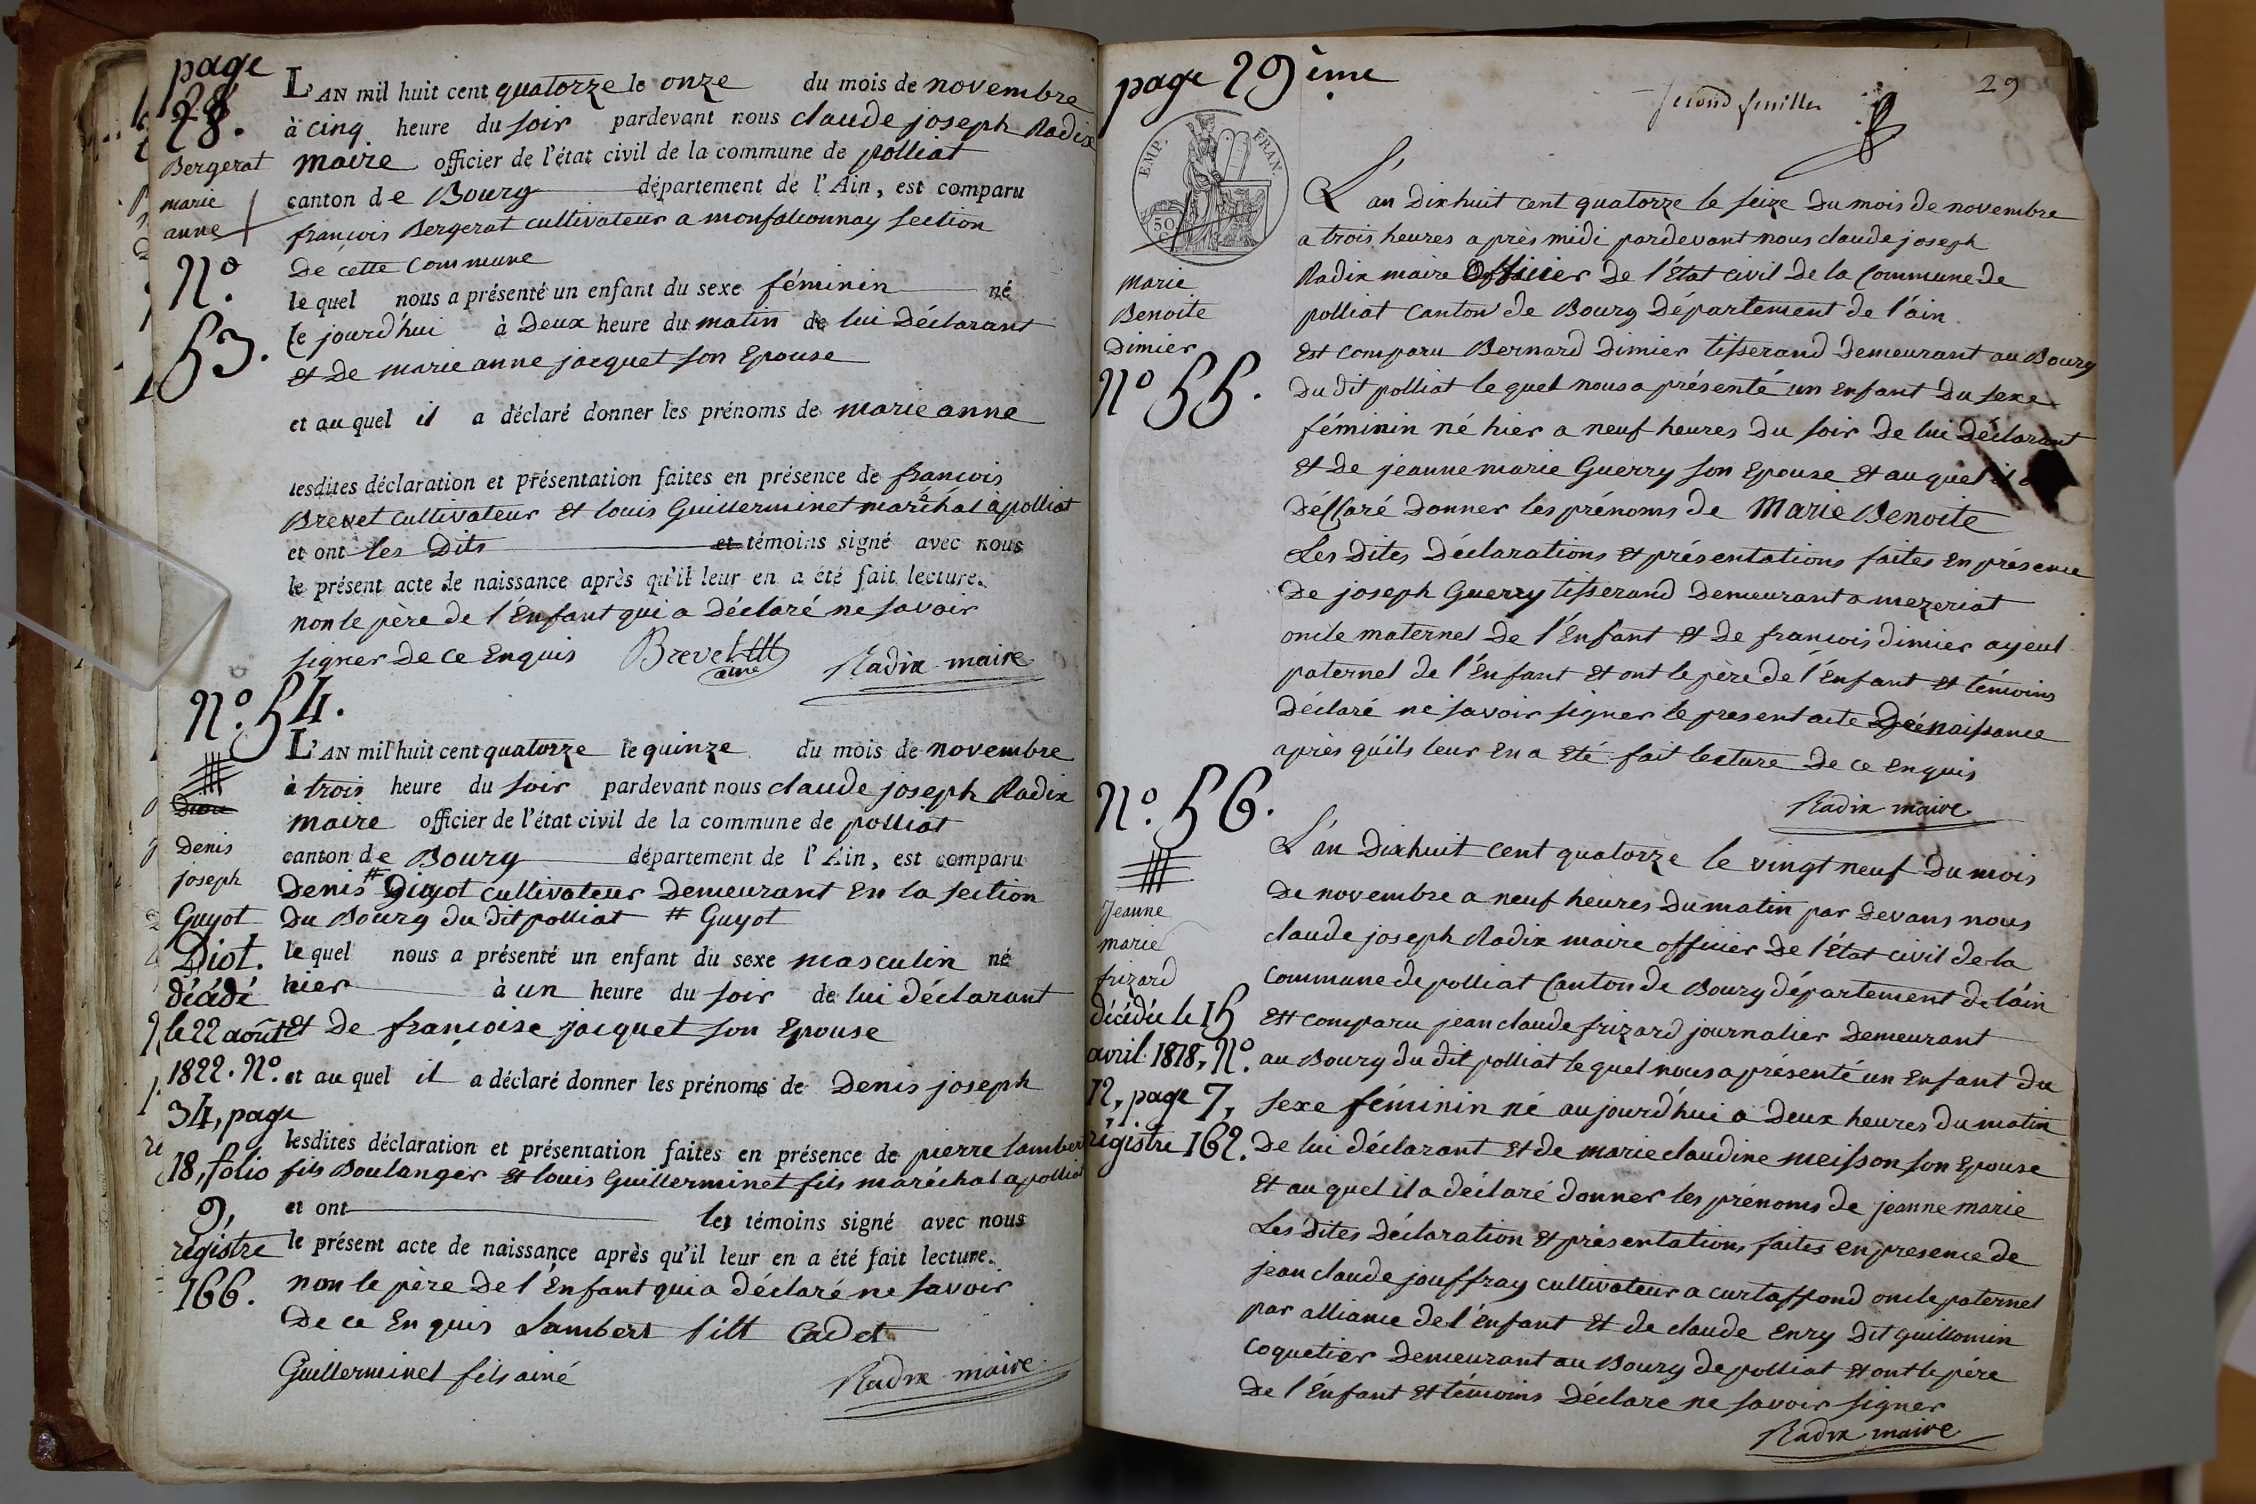 page
28.
Bergerat
marie
anne
N.º
53.
L'AN mil huit cent quatorze le onze du mois de novembre
à cinq heure du soir pardevant nous claude joseph Radix
maire officier de l'état civil de la commune de polliat
canton de Bourg département de l'Ain, est comparu
françois Bergerat cultivateur a monfalconnay section
de cette commune
le quel nous a présenté un enfant du sexe féminin né
le jourd'hui à deux heure du matin de lui déclarant
et de marie anne jacquet son Epouse
et au quel il a déclaré donner les prénoms de marie anne
lesdites déclaration et présentation faites en présence de françois
Brevet cultivateur et louis Guillerminet maréchal à polliat
et ont les dits et témoins signé avec nous
le présent acte de naissance après qu'il leur en a été fait lecture.
non le père de l'Enfant qui a déclaré ne savoir
signer de ce Enquis Brevet
ainé Radix maire
N.º 54.
Denis
joseph
Guyot
Diot.
décédé
le 22 août
1822. N.º
34, page
18, folio
9,
régistre
166.
L'AN mil huit cent quatorze le quinze du mois de novembre
à trois heure du soir pardevant nous claude joseph Radix
maire officier de l'état civil de la commune de polliat
canton de Bourg département de l'Ain, est comparu
Denis # cultivateur demeurant en la section
du Bourg du dit polliat # Guyot
le quel nous a présenté un enfant du sexe masculin né
hier à un heure du soir de lui déclarant
et de françoise jacquet son Epouse
et au quel il a déclaré donner les prénoms de Denis joseph
lesdites déclaration et présentation faites en présence de pierre lambert
fils Boulanger et louis Guillerminet fils maréchal a polliat
et ont les témoins signé avec nous
le présent acte de naissance après qu'il leur en a été fait lecture.
non le père de l'Enfant qui a déclaré ne savoir
de ce Enquis Lambert filt Cadet
Guillerminet fils ainé
Radix maire
page 29ème
second feuillet
29
EMP. FRAN.
50
C
marie
Benoite
Dimier
N.º 55.
L'an dix huit cent quatorze le seize du mois de novembre
a trois heures après midi pardevant nous claude joseph
Radix maire Officier de l'Etat civil de la Commune de
polliat Canton de Bourg Département de l'ain
est comparu Bernard Dimier tisserand demeurant au Bourg
du dit polliat le quel nous a présenté un enfant du sexe
féminin né hier a neuf heures du soir de lui déclarant
et de jeanne marie Guerry son Epouse et au quel il
déclaré donner les prénoms de Marie Benoite
Les dites déclarations et présentations faites en présence
de joseph Guerry tisserand demeurant a mezeriat
oncle maternel de l'Enfant et de françois dimier ayeul
paternel de l'Enfant et ont le père de l'enfant et témoins
déclaré ne savoir signer le present acte de naissance
après qu'ils leur en a eté fait lecture de ce enquis
Radix maire
N.º 56.
Jeanne
marie
frizard
décédée le 15
avril 1818, N.º
12, page 7,
régistre 162.
L'an dix huit cent quatorze le vingt neuf du mois
de novembre a neuf heures du matin par devans nous
claude joseph Radix maire officier de l'Etat civil de la
commune de polliat Canton de Bourg département de l'ain
est comparu jean claude frizard journalier demeurant
au Bourg du dit polliat le quel nous a présenté un enfant du
sexe féminin né aujourd'hui a deux heures du matin
de lui déclarant et de marie claudine meisson son Epouse
et au quel il a déclaré donner les prénoms de jeanne marie
Les dites déclaration et présentations faites en presence de
jean claude jouffray cultivateur a curtaffond oncle paternel
par alliance de l'enfant et de claude Enry dit guillomin
coquetier demeurant au Bourg de polliat et ont le père
de l'Enfant et témoins déclare ne savoir signer
Radix maire